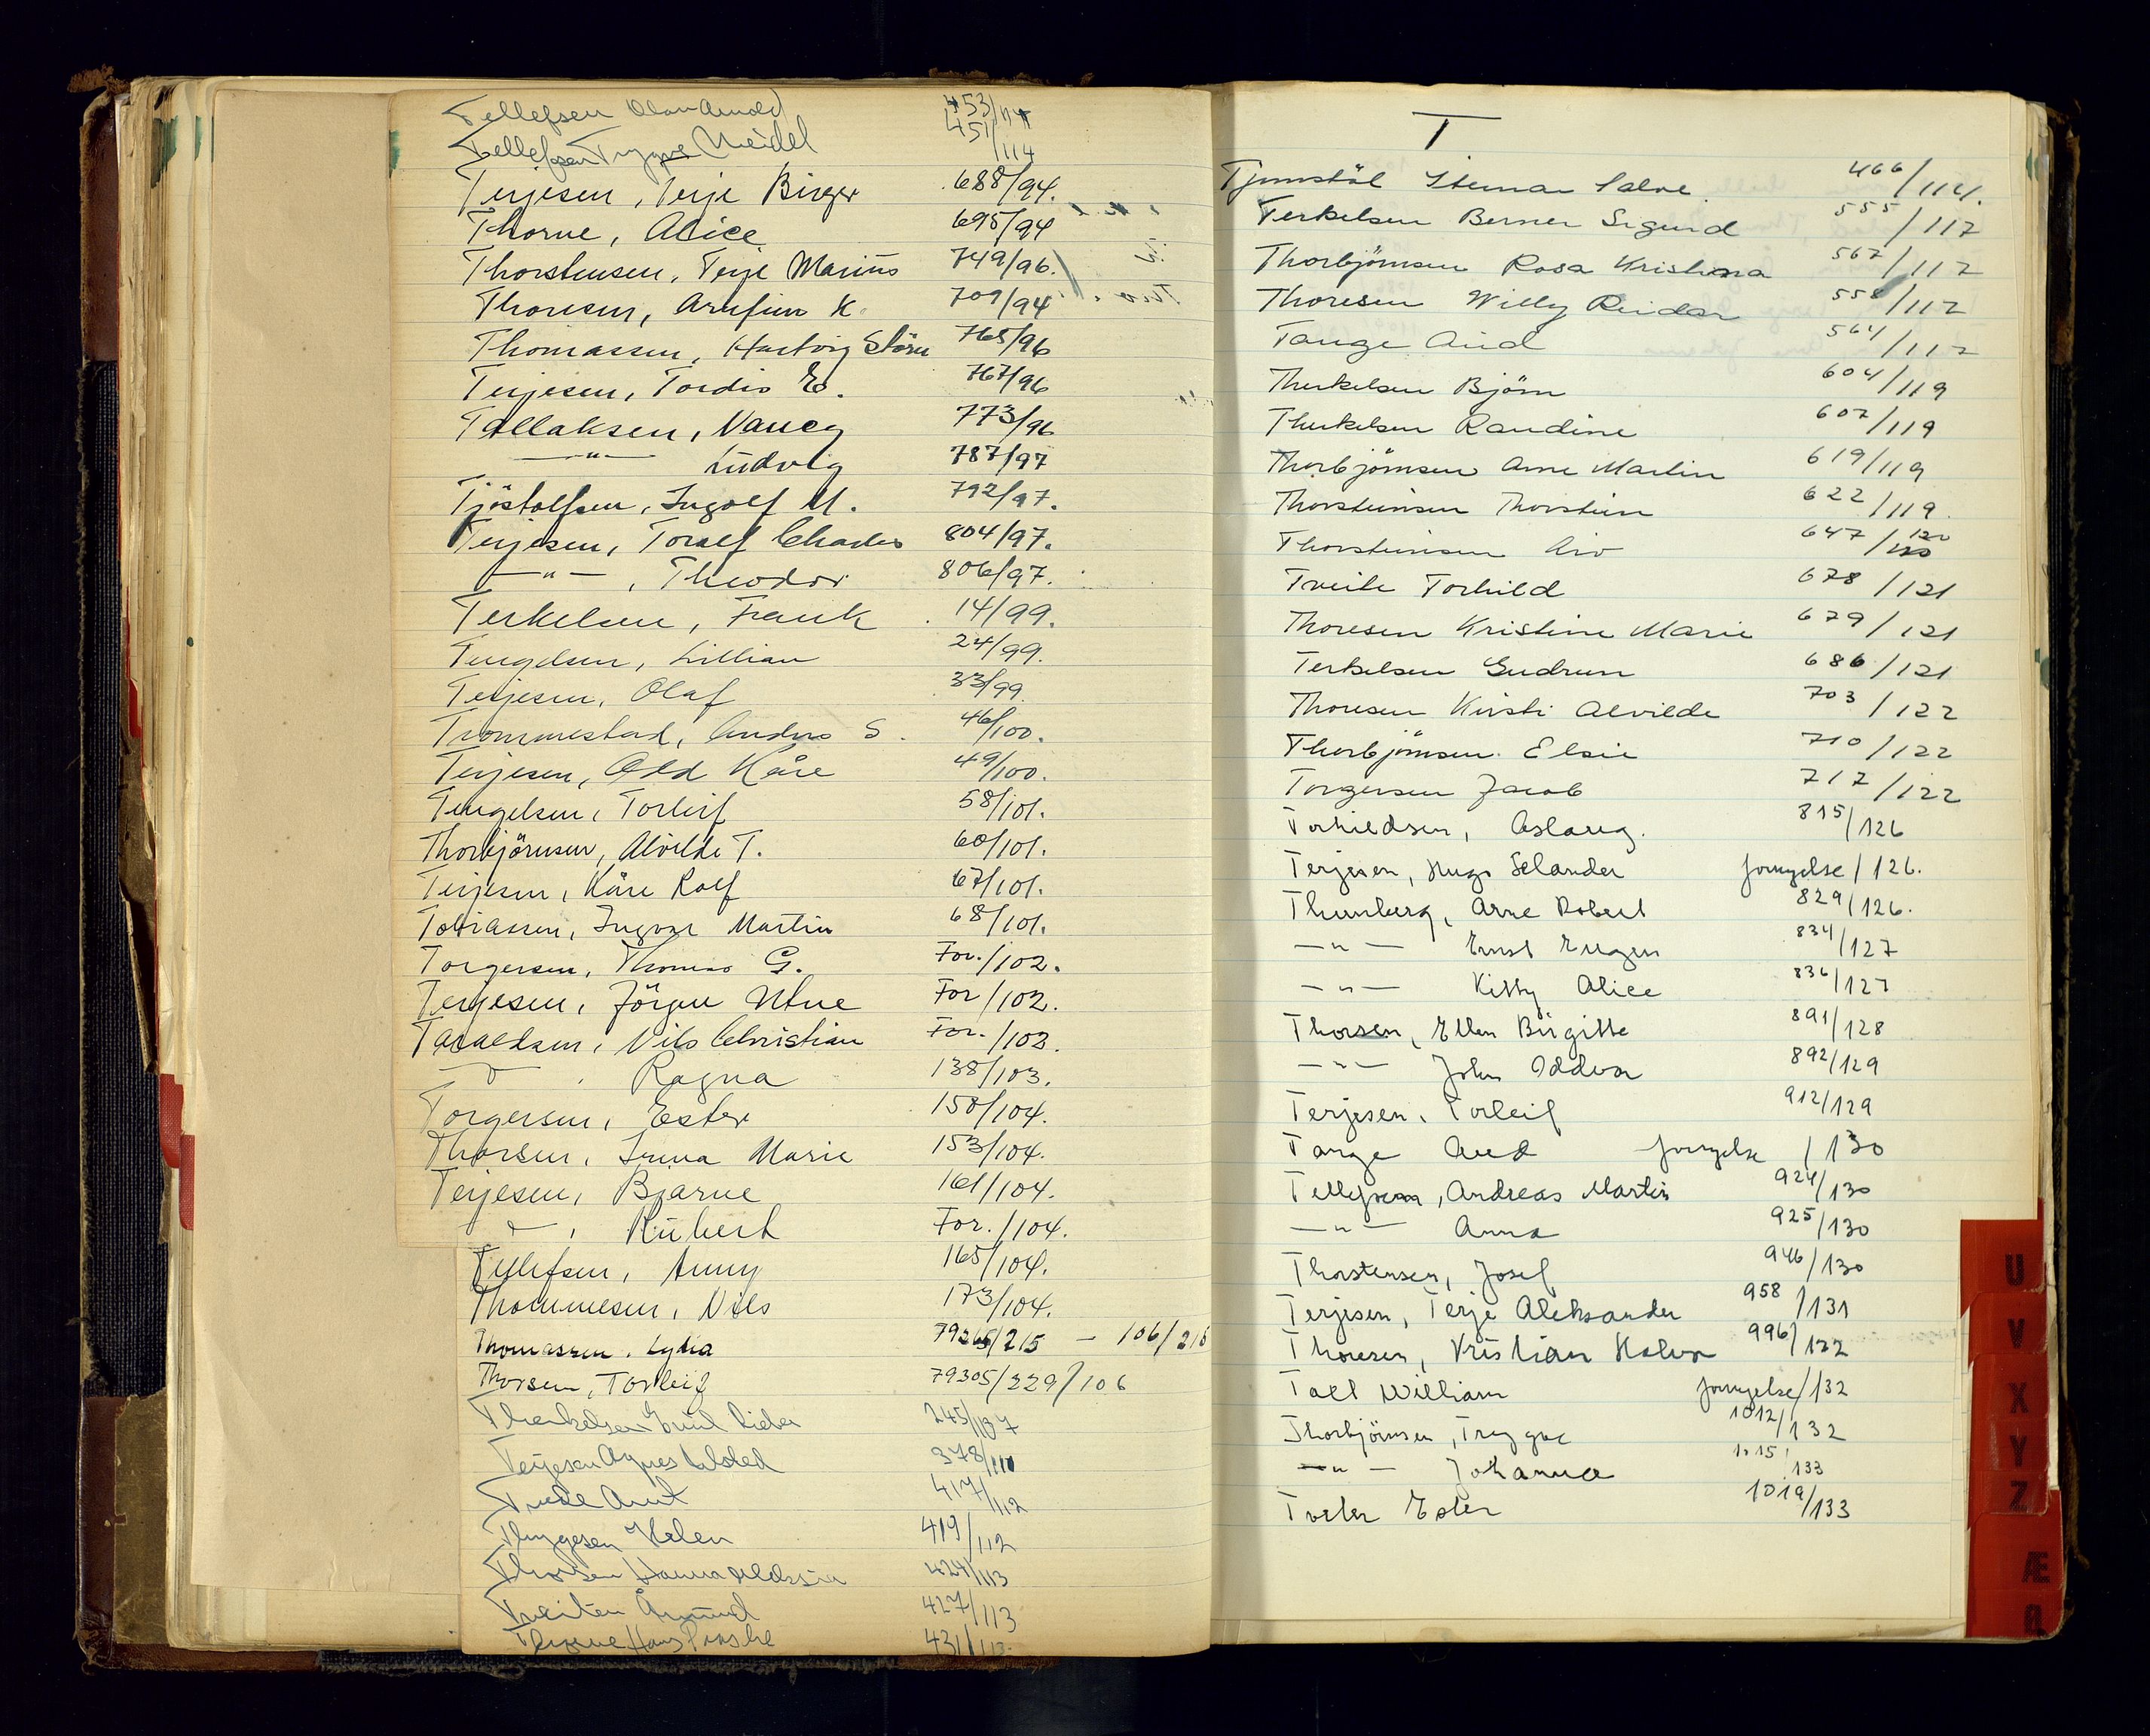 Tellefsen Olav Arnold 453/114
Tellefsen Trygve Meidel 451/114
Terjesen, Terje Birger 688/94.
Thorne, Alice 695/94
Thorstensen, Terje Marius 749/96.
Thoresen, Arnfinn K. 709/94
Thomassen, Hartvig Störe 765/96
Terjesen, Tordis E. 767/96
Tallaksen, Nancy 773/96
—"— Ludvig 787/97
Tjöstolfsen, Ingolf M. 792/97.
Terjesen, Toralf Charles 804/97.
—"—, Theodor 806/97.
Terkelsen, Frank 14/99.
Tengelsen, Lillian 24/99.
Terjesen, Olaf 33/99
Trommestad, Anders S. 46/100.
Terjesen, Odd Kåre 49/100.
Tengelsen, Torleif 58/101.
Thorbjörnsen, Alvilde T. 60/101.
Terjesen, Kåre Rolf 67/101.
Tobiassen, Ingvar Martin 68/101.
Torgersen, Thomas G. For./102.
Terjesen, Jörgen Utne For/102.
Taraldsen, Nils Christian For./102.
, Ragna 138/103.
Torgersen, Ester 150/104.
Thorsen, Irma Marie 153/104.
Terjesen, Bjarne 161/104.
, Hubert For./104.
Tellefsen, Anny 165/104.
Thommesen, Nils 173/104.
Thomassen, Lydia 79265/215 – 106/215
Thorsen, Torleif 79305/229/106
Therkelsen Emil 245/107
Terjesen Agnes 378/111
Arnt 417/112
Thygesen Helen 419/112
Thorsen Hanna 424/113
Tveiten Åmund 427/113
Thorne Hans 431/113.
T
Tjomstöl Steinar Salve 466/114.
Terkelsen Berner Sigurd 555/117
Thorbjörnsen Rosa Kristina 567/117
Thoresen Willy Reidar 558/117
Tange Aud 564/117
Therkelsen Björn 604/119
Therkelsen Randine 607/119
Thorbjörnsen Arne Martin 619/119
Thorsteinsen Thorstein 622/119.
Thorsteinsen Aiv 647/120
Tveite Torhild 678/121
Thoresen Kristine Marie 679/121
Terkelsen Gudrun 686/121
Thoresen Kirsti Alvilde 703/122
Thorbjörnsen Elsie 710/122
Torgersen Jacob 717/122
Torkildsen, Aslaug. 815/126
Terjesen, Hugo Selander fornyelse/126.
Thunberg, Arne Robert 829/126.
—"— Ernst Eugen 834/127
—"— Kitty Alice 836/127
Thorsen, Ellen Birgitte 891/128
—"— John Oddvar 892/129
Terjesen, Torleif 912/129
Tange Aud fornyelse/130
Tellefsen, Andreas Martin 924/130
—"— Anna 925/130
Thorstensen, Josef 946/130
Terjesen, Terje Aleksander 958/131
Thoresen, Kristian Halvor 996/132
Tall William fornyelse/132
Thorbjörnsen, Trygve 1012/132
—"— Johanna 1015/133
Tveter Ester 1019/133
U
V
X
Y
Z
Æ
Ø